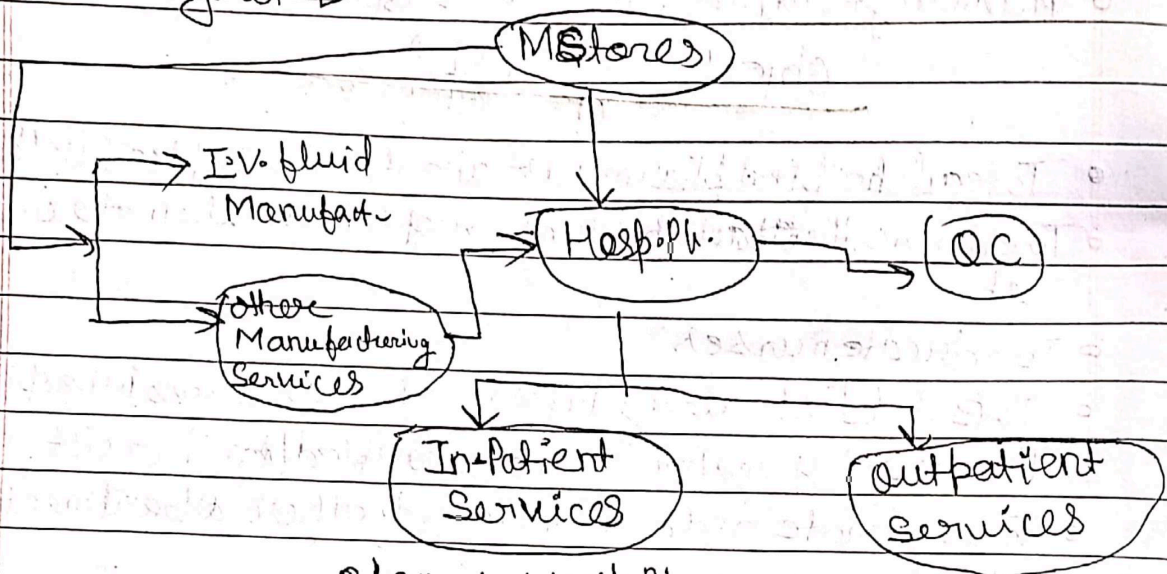 MStores
I.V. fluid
Manufact.
Hosp. Ph.
QC
other
Manufacturing
Services
In-Patient
Services
Outpatient
Services